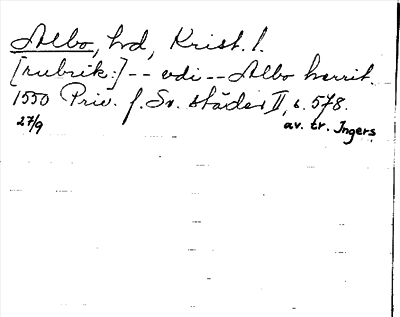 Albo, hd, Krist. l.
[rubrik:] -- udi -- Albo herrit.
1550 Priv. f. Sv. städer II, s. 578.
27/9 av. tr. Ingers